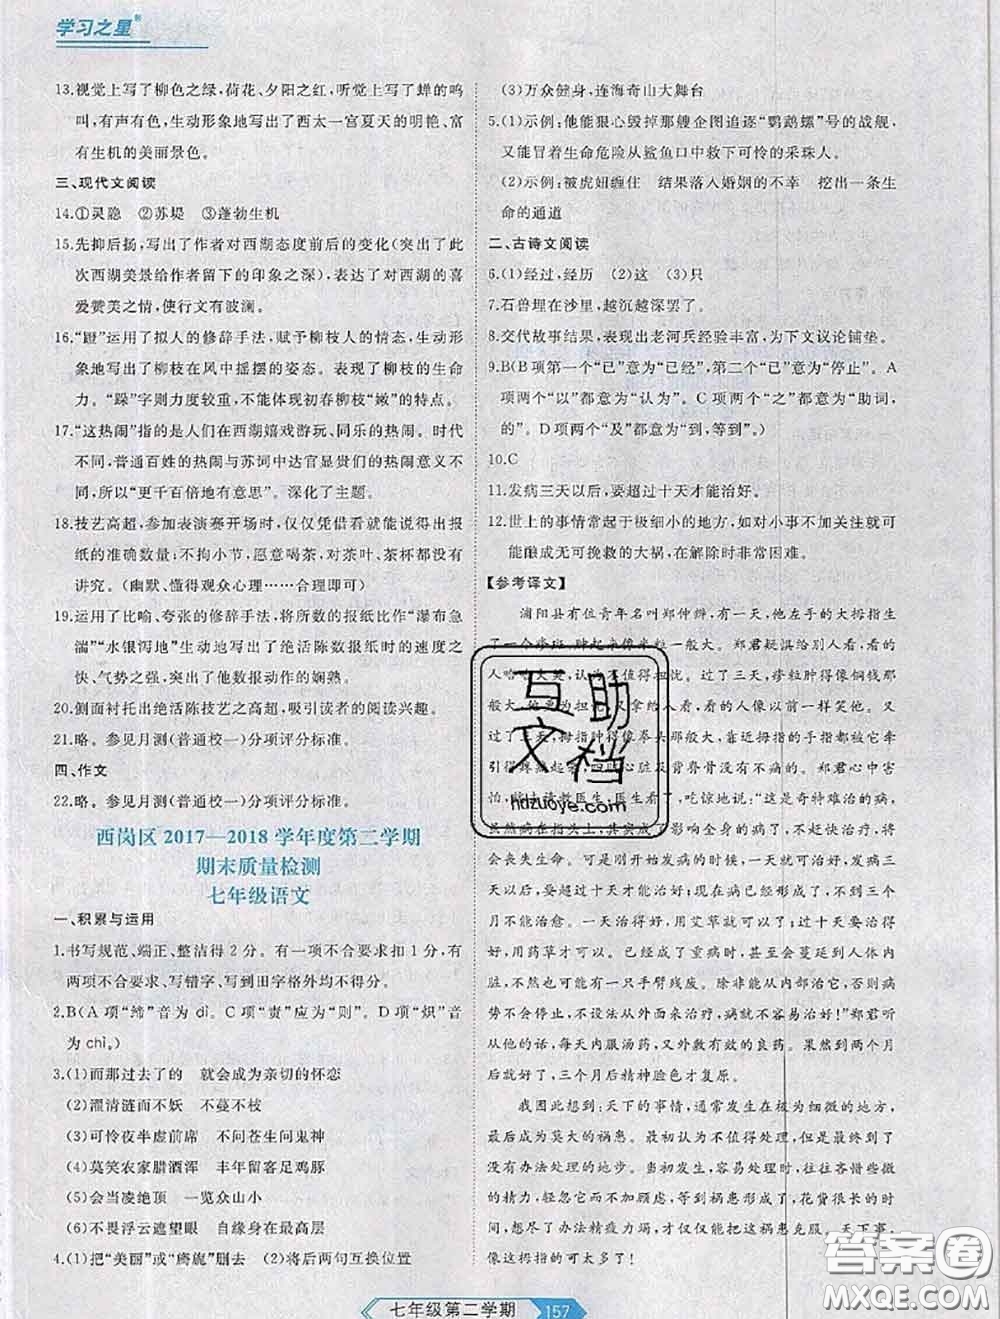 学习之星
13.视觉上写了柳色之绿,荷花、夕阳之红,听觉上写了蝉的鸣
叫,有声有色,生动形象地写出了西太一宫夏天的明艳、富
有生机的美丽景色。
三、现代文阅读
14.①灵隐 ②苏堤 ③蓬勃生机
15.先抑后扬,写出了作者对西湖态度前后的变化(突出了此
次西湖美景给作者留下的印象之深),表达了对西湖的喜
爱赞美之情,使行文有波澜。
16.“蹬”运用了拟人的修辞手法,赋予柳枝人的情态,生动形
象地写出了柳枝在风中摇摆的姿态。表现了柳枝的生命
力。“跺”字则力度较重,不能体现初春柳枝“嫩”的特点。
17.“这热闹”指的是人们在西湖嬉戏游玩、同乐的热闹。时代
不同,普通百姓的热闹与苏词中达官显贵们的热闹有天壤
之别,所以“更千百倍地有意思”。深化了主题。
18.技艺高超,参加表演赛开场时,仅仅凭借看就能说出出报
纸的准确数量;不拘小节,愿意喝茶,对茶叶、茶杯都没有
讲究。(幽默、懂得观众心理……合理即可)
19.运用了比喻、夸张的修辞手法,将所数的报纸比作“瀑布急
湍”“水银泻地”生动地写出了绝活陈数报纸时的速度之
快、气势之强,突出了他数报动作的娴熟。
20.侧面衬托出绝活陈技艺之高超,吸引读者的阅读兴趣。
21.略。参见月测(普通校一)分项评分标准。
四、作文
22.略。参见月测(普通校一)分项评分标准。
西岗区 2017—2018 学年度第二学期
期末质量检测
七年级语文
一、积累与运用
1.书写规范、端正、整洁得 2 分。有一项不合要求扣 1 分,有
两项不合要求、写错字、写到田字格外均不得分。
2.B(A 项“缔”音为 dì。C 项“责”应为“则”。D 项“炽”音
为 chì。)
3.(1)而那过去了的 就会成为亲切的怀恋
(2)濯清涟而不妖 不蔓不枝
(3)可怜夜半虚前席 不问苍生问鬼神
(4)莫笑农家腊酒浑 丰年留客足鸡豚
(5)会当凌绝顶 一览众山小
(6)不畏浮云遮望眼 自缘身在最高层
4.(1)把“美丽”或“旖旎”删去 (2)将后两句互换位置
(3)万众健身,连海奇山大舞台
5.(1)示例:他能狠心毁掉那艘企图追逐“鹦鹉螺”号的战舰,
又能冒着生命危险从鲨鱼口中救下可怜的采珠人。
(2)示例:被虎妞缠住 结果落入婚姻的不幸 挖出一条生
命的通道
二、古诗文阅读
6.(1)经过,经历 (2)这 (3)只
7.石兽埋在沙里,越沉越深罢了。
8.交代故事结果,表现出老河兵经验丰富,为下文议论铺垫。
9.B(B 项第一个“已”意为“已经”,第二个“已”意为“停止”。A
项两个“以”都意为“认为”。C 项两个“之”都意为“助词,
的”。D 项两个“及”都意为“到,等到”。)
10.C
11.发病三天以后,要超过十天才能治好。
12.世上的事情常起于极细小的地方,如对小事不加关注就可
能酿成无可挽救的大祸,在解除时非常困难。
【参考译文】
浦阳县有位青年名叫郑仲辨,有一天,他左手的大拇指生
了一个疹斑,肿起来像米粒一般大。郑君疑惧给别人看,看的
人哈哈大笑,认为不值得担忧。过了三天,疹粒肿得像铜钱那
般大,他愈为担忧,又拿给人看,看的人像以前一样笑他。又
过了三天,拇指肿得像拳头那般大,靠近拇指的手指都牵
引疼痛,像割刺的样子,四肢心脏及背脊骨没有不痛的。郑君心中害
怕,就去请教医生,医生看了,吃惊地说:“这是奇特难治的病,
虽然病在指头上,其实成了影响全身的病,不赶快治疗,将
会丧失生命。可是开始发病的时候,一天就可治好,发病三
天以后,要超过十天才能治好;现在病已经形成了,不到三个
月不能治愈。一天治得好,用艾草就可以了;过十天要治得
好,用药才可以。已经成了重病时,甚至会蔓延到人体内
脏,不然也可能有一只手臂残废。除非能从内部治它,否则病
势不会停止,不设法从外面来治疗,病就不容易好!郑君听从
他的话,每天内服汤药,又外敷有效的良药。果然到两个月
后就好了,三个月后精神脸色才复原。
我因此想到:天下的事情,通常发生在极为细微的地方,
最后成为莫大的祸患。最初认为不值得处理,但最后会变成
没有办法处理的地步。当初易处理时,往往吝惜些微
的精力,轻忽它而不加顾虑;等到祸患形成了,花货很长的时
间,费尽了办法弄得精疲力竭,才仅仅能够把这祸患克服。天下事,
像这拇指的可太多了!
互助
文档
hdzuoye.com
答案圈
MXQE.COM
七年级第二学期 157